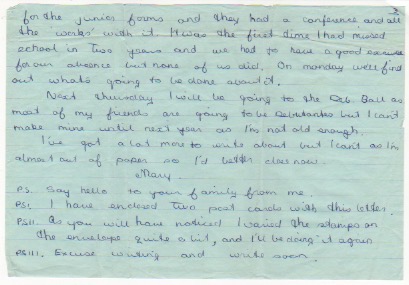 2
for the junior forms and they had a conference and all
the 'works' with it. It was the first time I had missed
school in two years and we had to have a good excuse
for our absence but none of us did. On monday we'll find
out what's going to be done about it.
Next thursday I will be going to the Deb Ball as
most of my friends are going to be Debutantes but I can't
make mine until next year as I'm not old enough.
I've got a lot more to write about but I can't as I'm
almost out of paper so I'd better close now.
Mary.
PS. Say hello to your family from me.
PSI. I have enclosed two post cards with this letter.
PSII. As you will have noticed I varied the stamps on
the envelope quite a bit, and I'll be doing it again
PSIII. Excuse writing and write soon.